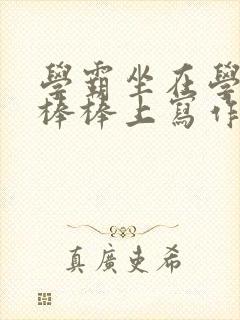 學霸坐在學
棒棒上寫作
真廣吏希